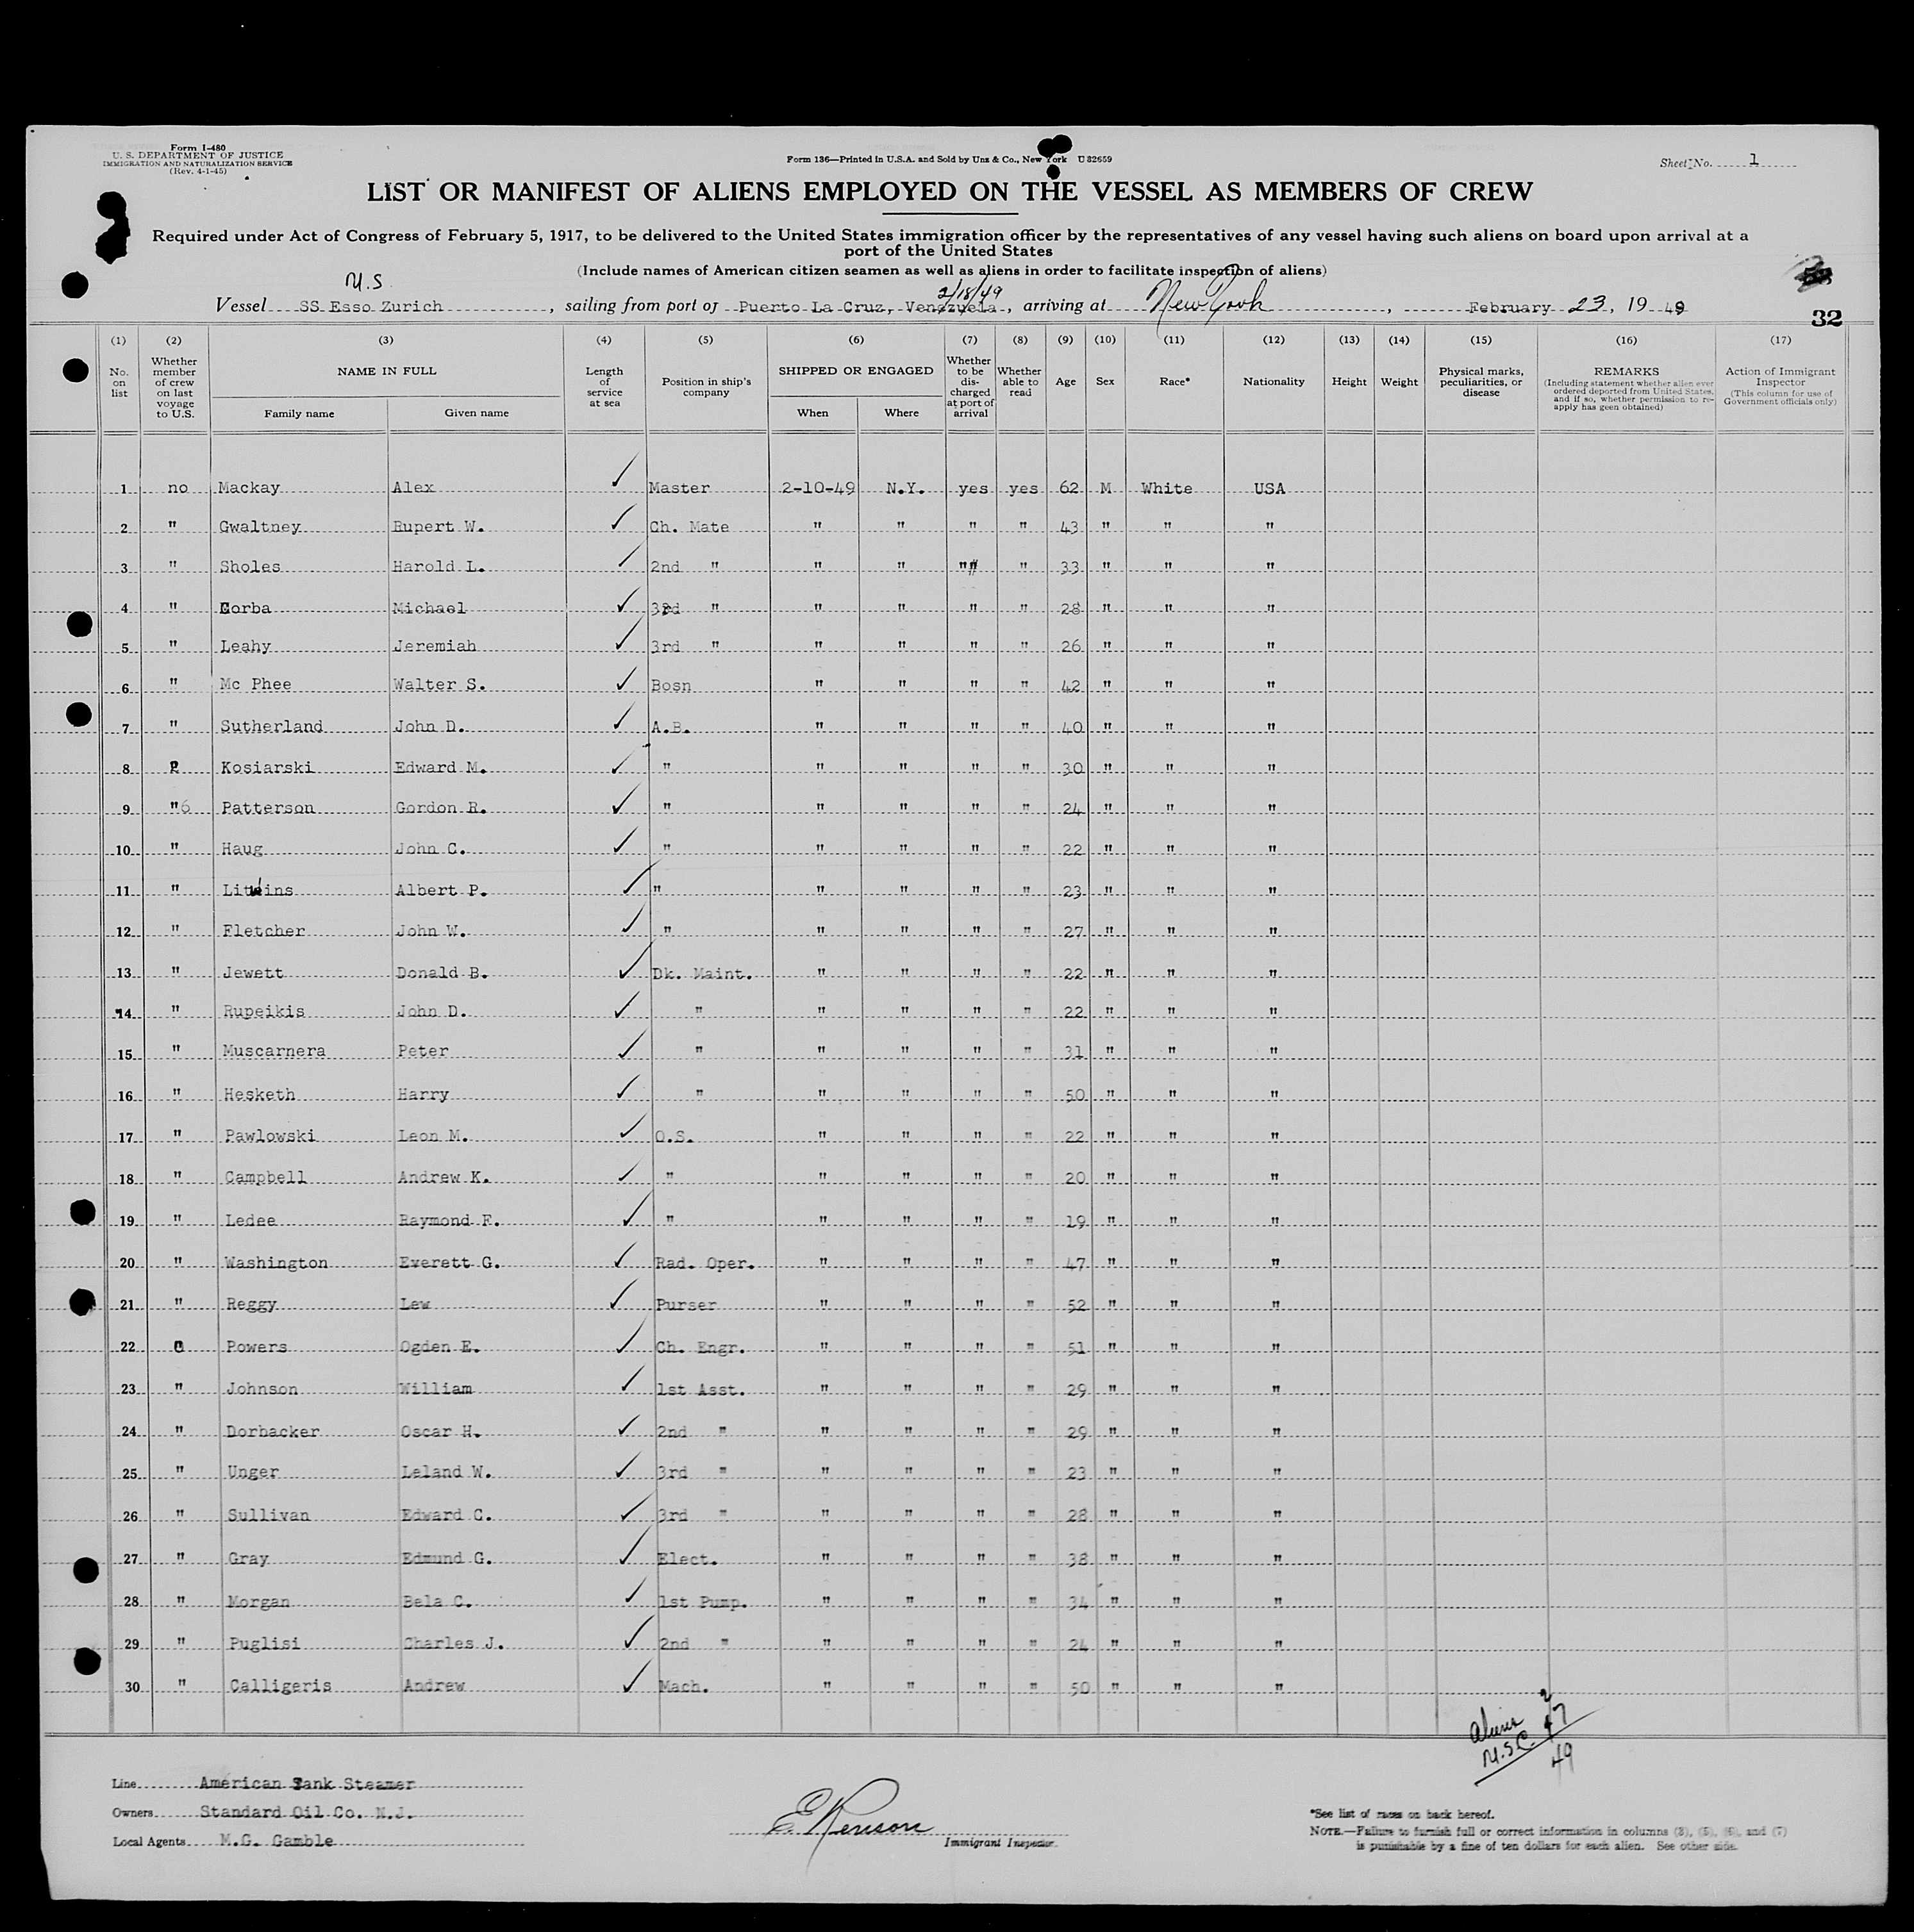 Form I-480
U. S. DEPARTMENT OF JUSTICE
IMMIGRATION AND NATURALIZATION SERVICE
(Rev. 4-1-45)
Form 136—Printed in U.S.A. and Sold by Unz & Co., New York U 32659
Sheet No. 1
LIST OR MANIFEST OF ALIENS EMPLOYED ON THE VESSEL AS MEMBERS OF CREW
Required under Act of Congress of February 5, 1917, to be delivered to the United States immigration officer by the representatives of any vessel having such aliens on board upon arrival at a
port of the United States
(Include names of American citizen seamen as well as aliens in order to facilitate inspection of aliens)
U.S. 2/18/49
Vessel SS Esso Zurich, sailing from port of Puerto La Cruz, Venezuela, arriving at New York, February 23, 1949
32
(1) (2) (3) (4) (5) (6) (7) (8) (9) (10) (11) (12) (13) (14) (15) (16) (17)
No. on list
Whether member of crew on last voyage to U.S.
NAME IN FULL
Family name Given name
Length of service at sea
Position in ship's company
SHIPPED OR ENGAGED
When Where
Whether to be discharged at port of arrival
Whether able to read
Age Sex Race* Nationality Height Weight
Physical marks, peculiarities, or disease
REMARKS
(Including statement whether alien ever ordered deported from United States, and if so, whether permission to re-apply has geen obtained)
Action of Immigrant Inspector
(This column for use of Government officials only)
1 no Mackay Alex ✓ Master 2-10-49 N.Y. yes yes 62 M White USA
2 " Gwaltney Rupert W. ✓ Ch. Mate " " " " 43 " " "
3 " Sholes Harold L. ✓ 2nd " " " " " 33 " " "
4 " Corba Michael ✓ 3rd " " " " " 28 " " "
5 " Leahy Jeremiah ✓ 3rd " " " " " 26 " " "
6 " Mc Phee Walter S. ✓ Bosn " " " " 42 " " "
7 " Sutherland John D. ✓ A.B. " " " " 40 " " "
8 " Kosiarski Edward M. ✓ " " " " " 30 " " "
9 "6 Patterson Gordon R. ✓ " " " " " 24 " " "
10 " Haug John C. ✓ " " " " " 22 " " "
11 " Albert P. ✓ " " " " " 23 " " "
12 " Fletcher John W. ✓ " " " " " 27 " " "
13 " Jewett Donald B. ✓ Dk. Maint. " " " " 22 " " "
14 " Rupeikis John D. ✓ " " " " " 22 " " "
15 " Muscarnera Peter ✓ " " " " " 31 " " "
16 " Hesketh Harry ✓ " " " " " 50 " " "
17 " Pawlowski Leon M. ✓ O.S. " " " " 22 " " "
18 " Campbell Andrew K. ✓ " " " " " 20 " " "
19 " Ledee Raymond F. ✓ " " " " " 19 " " "
20 " Washington Everett G. ✓ Rad. Oper. " " " " 47 " " "
21 " Reggy Lew ✓ Purser " " " " 52 " " "
22 " Powers Ogden E. ✓ Ch. Engr. " " " " 51 " " "
23 " Johnson William ✓ 1st Asst. " " " " 29 " " "
24 " Dorbacker Oscar H. ✓ 2nd " " " " " 29 " " "
25 " Unger Leland W. ✓ 3rd " " " " " 23 " " "
26 " Sullivan Edward C. ✓ 3rd " " " " " 28 " " "
27 " Gray Edmund G. ✓ Elect. " " " " 38 " " "
28 " Morgan Bela C. ✓ 1st Pump. " " " " 34 " " "
29 " Puglisi Charles J. ✓ 2nd " " " " " 24 " " "
30 " Calligeris Andrew ✓ Mach. " " " " 50 " " "
Aliens 2
U.S.C. 47
49
Line American Tank Steamer
Owners Standard Oil Co. N.J.
Local Agents M.G. Gamble
Immigrant Inspector.
*See list of races on back hereof.
NOTE.—Failure to furnish full or correct information in columns (3), (5), (6), and (7)
is punishable by a fine of ten dollars for each alien. See other side.